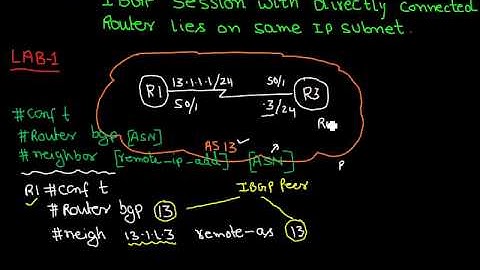 IBGP Session with directly connected
Router lies on same IP subnet.
LAB-1
R1 13.1.1.1/24 S0/1 R3
S0/1 .3/24
#Conf t
#Router bgp [ASN] AS 13
#neighbor [remote-ip-add] [ASN]
R1 #Conf t IBGP Peer
#Router bgp 13
#neigh 13.1.1.3 remote-as 13